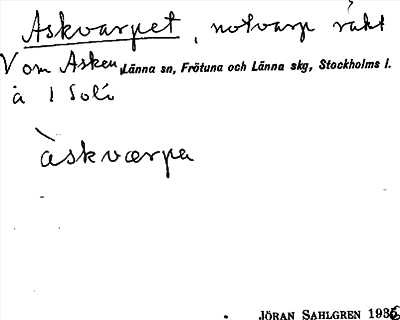 Askvarpet, notvarp rakt
V om Asken, Länna sn, Frötuna och Länna skg, Stockholms l.
å 1 Solö
àskværpa
JÖRAN SAHLGREN 1936